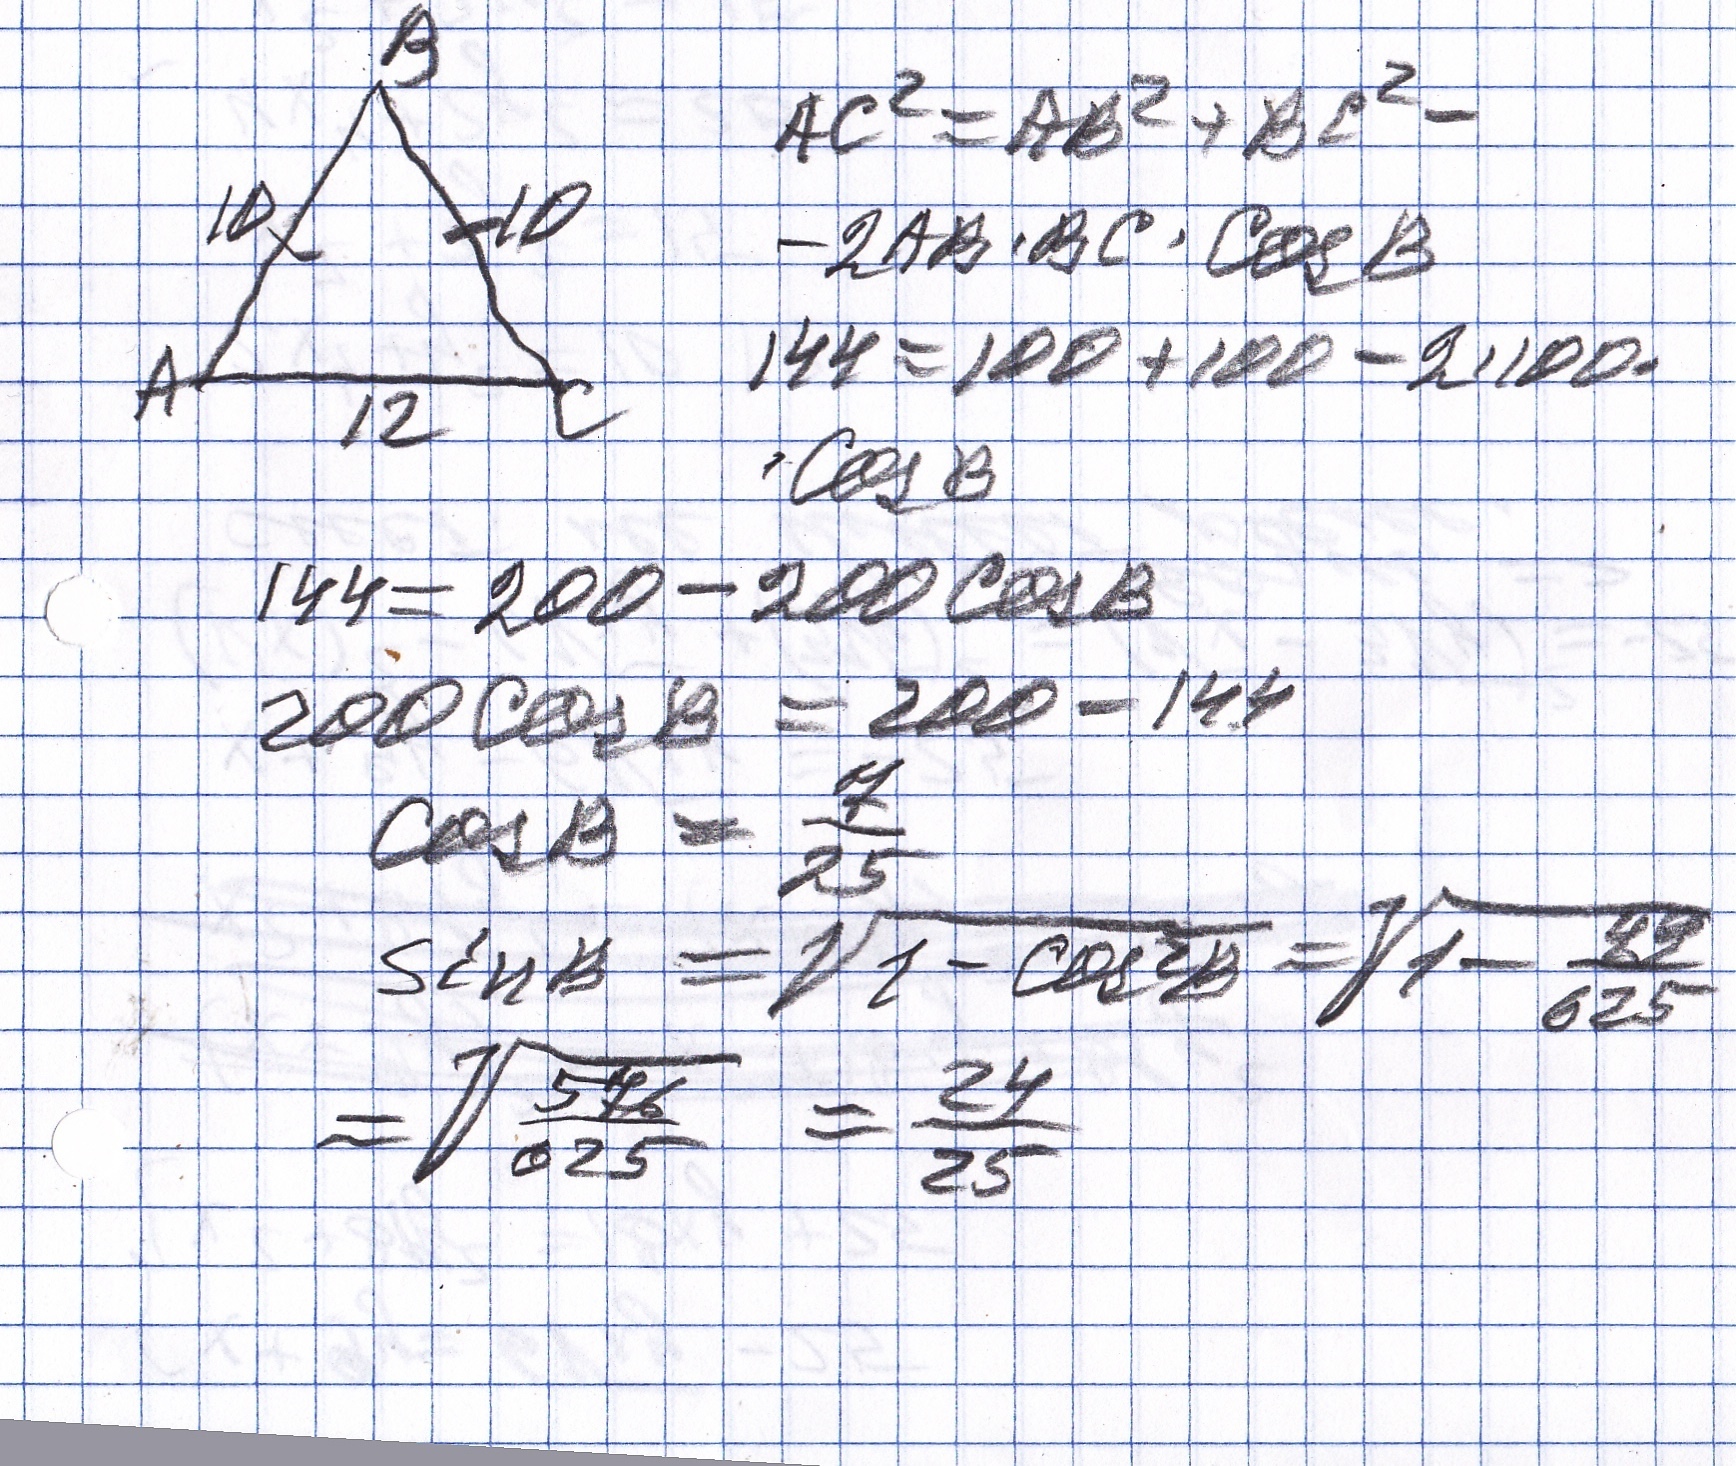 B
10
10
A
12
C
AC² = AB² + BC² -
- 2AB · BC · Cos B
144 = 100 + 100 - 2·100·
· Cos B
144 = 200 - 200 Cos B
200 Cos B = 200 - 144
Cos B = 7/25
sin B = √(1 - Cos²B) = √(1 - 49/625)
= √(576/625) = 24/25